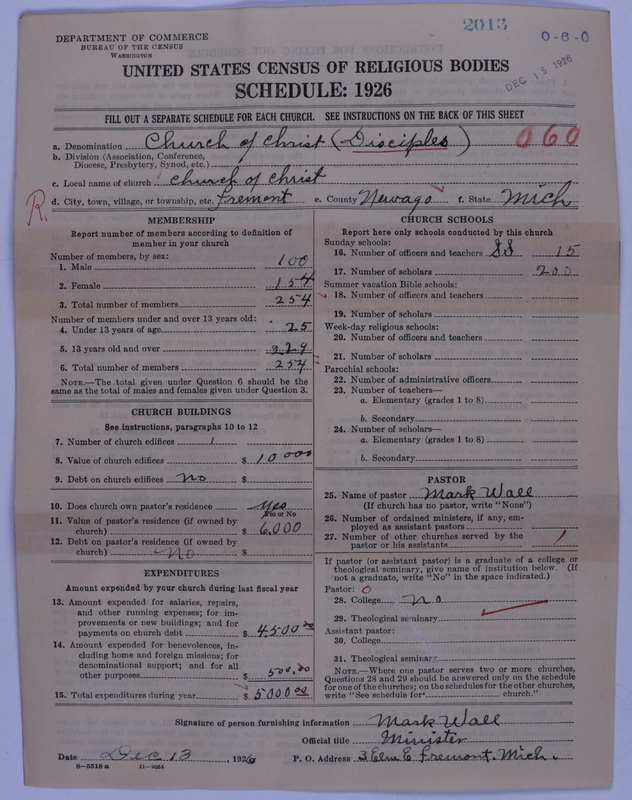 2013
0-6-0
DEPARTMENT OF COMMERCE
BUREAU OF THE CENSUS
WASHINGTON
DEC 15 1926
UNITED STATES CENSUS OF RELIGIOUS BODIES
SCHEDULE: 1926
FILL OUT A SEPARATE SCHEDULE FOR EACH CHURCH. SEE INSTRUCTIONS ON THE BACK OF THIS SHEET
a. Denomination Church of Christ (Disciples) 060
b. Division (Association, Conference, Diocese, Presbytery, Synod, etc.)
c. Local name of church Church of Christ
R. d. City, town, village, or township, etc. Fremont e. County Newago f. State Mich
MEMBERSHIP
Report number of members according to definition of
member in your church
Number of members, by sex:
1. Male 100
2. Female 154
3. Total number of members 254
Number of members under and over 13 years old:
4. Under 13 years of age 25
5. 13 years old and over 229
6. Total number of members 254
NOTE.—The total given under Question 6 should be the
same as the total of males and females given under Question 3.
CHURCH BUILDINGS
See instructions, paragraphs 10 to 12
7. Number of church edifices 1
8. Value of church edifices $ 10 000
9. Debt on church edifices No $
10. Does church own pastor's residence Yes
Yes or No
11. Value of pastor's residence (if owned by
church) $ 6,000
12. Debt on pastor's residence (if owned by
church) No $
EXPENDITURES
Amount expended by your church during last fiscal year
13. Amount expended for salaries, repairs,
and other running expenses; for im-
provements or new buildings; and for
payments on church debt $ 4500 00
14. Amount expended for benevolences, in-
cluding home and foreign missions; for
denominational support; and for all
other purposes $ 500.00
15. Total expenditures during year $ 5000 00
CHURCH SCHOOLS
Report here only schools conducted by this church
Sunday schools:
16. Number of officers and teachers SS 15
17. Number of scholars 200
Summer vacation Bible schools:
18. Number of officers and teachers
19. Number of scholars
Week-day religious schools:
20. Number of officers and teachers
21. Number of scholars
Parochial schools:
22. Number of administrative officers
23. Number of teachers—
a. Elementary (grades 1 to 8)
b. Secondary
24. Number of scholars—
a. Elementary (grades 1 to 8)
b. Secondary
PASTOR
25. Name of pastor Mark Wall
(If church has no pastor, write "None")
26. Number of ordained ministers, if any, em-
ployed as assistant pastors
27. Number of other churches served by the
pastor or his assistants 1
If pastor (or assistant pastor) is a graduate of a college or
theological seminary, give name of institution below. (If
not a graduate, write "No" in the space indicated.)
Pastor: 0
28. College No
29. Theological seminary
Assistant pastor:
30. College
31. Theological seminary
NOTE.—Where one pastor serves two or more churches,
Questions 28 and 29 should be answered only on the schedule
for one of the churches; on the schedules for the other churches,
write "See schedule for church."
Signature of person furnishing information Mark Wall
Official title Minister
Date Dec 13, 1926 P. O. Address 3 Elm E Fremont. Mich.
8—5518a 11—9264